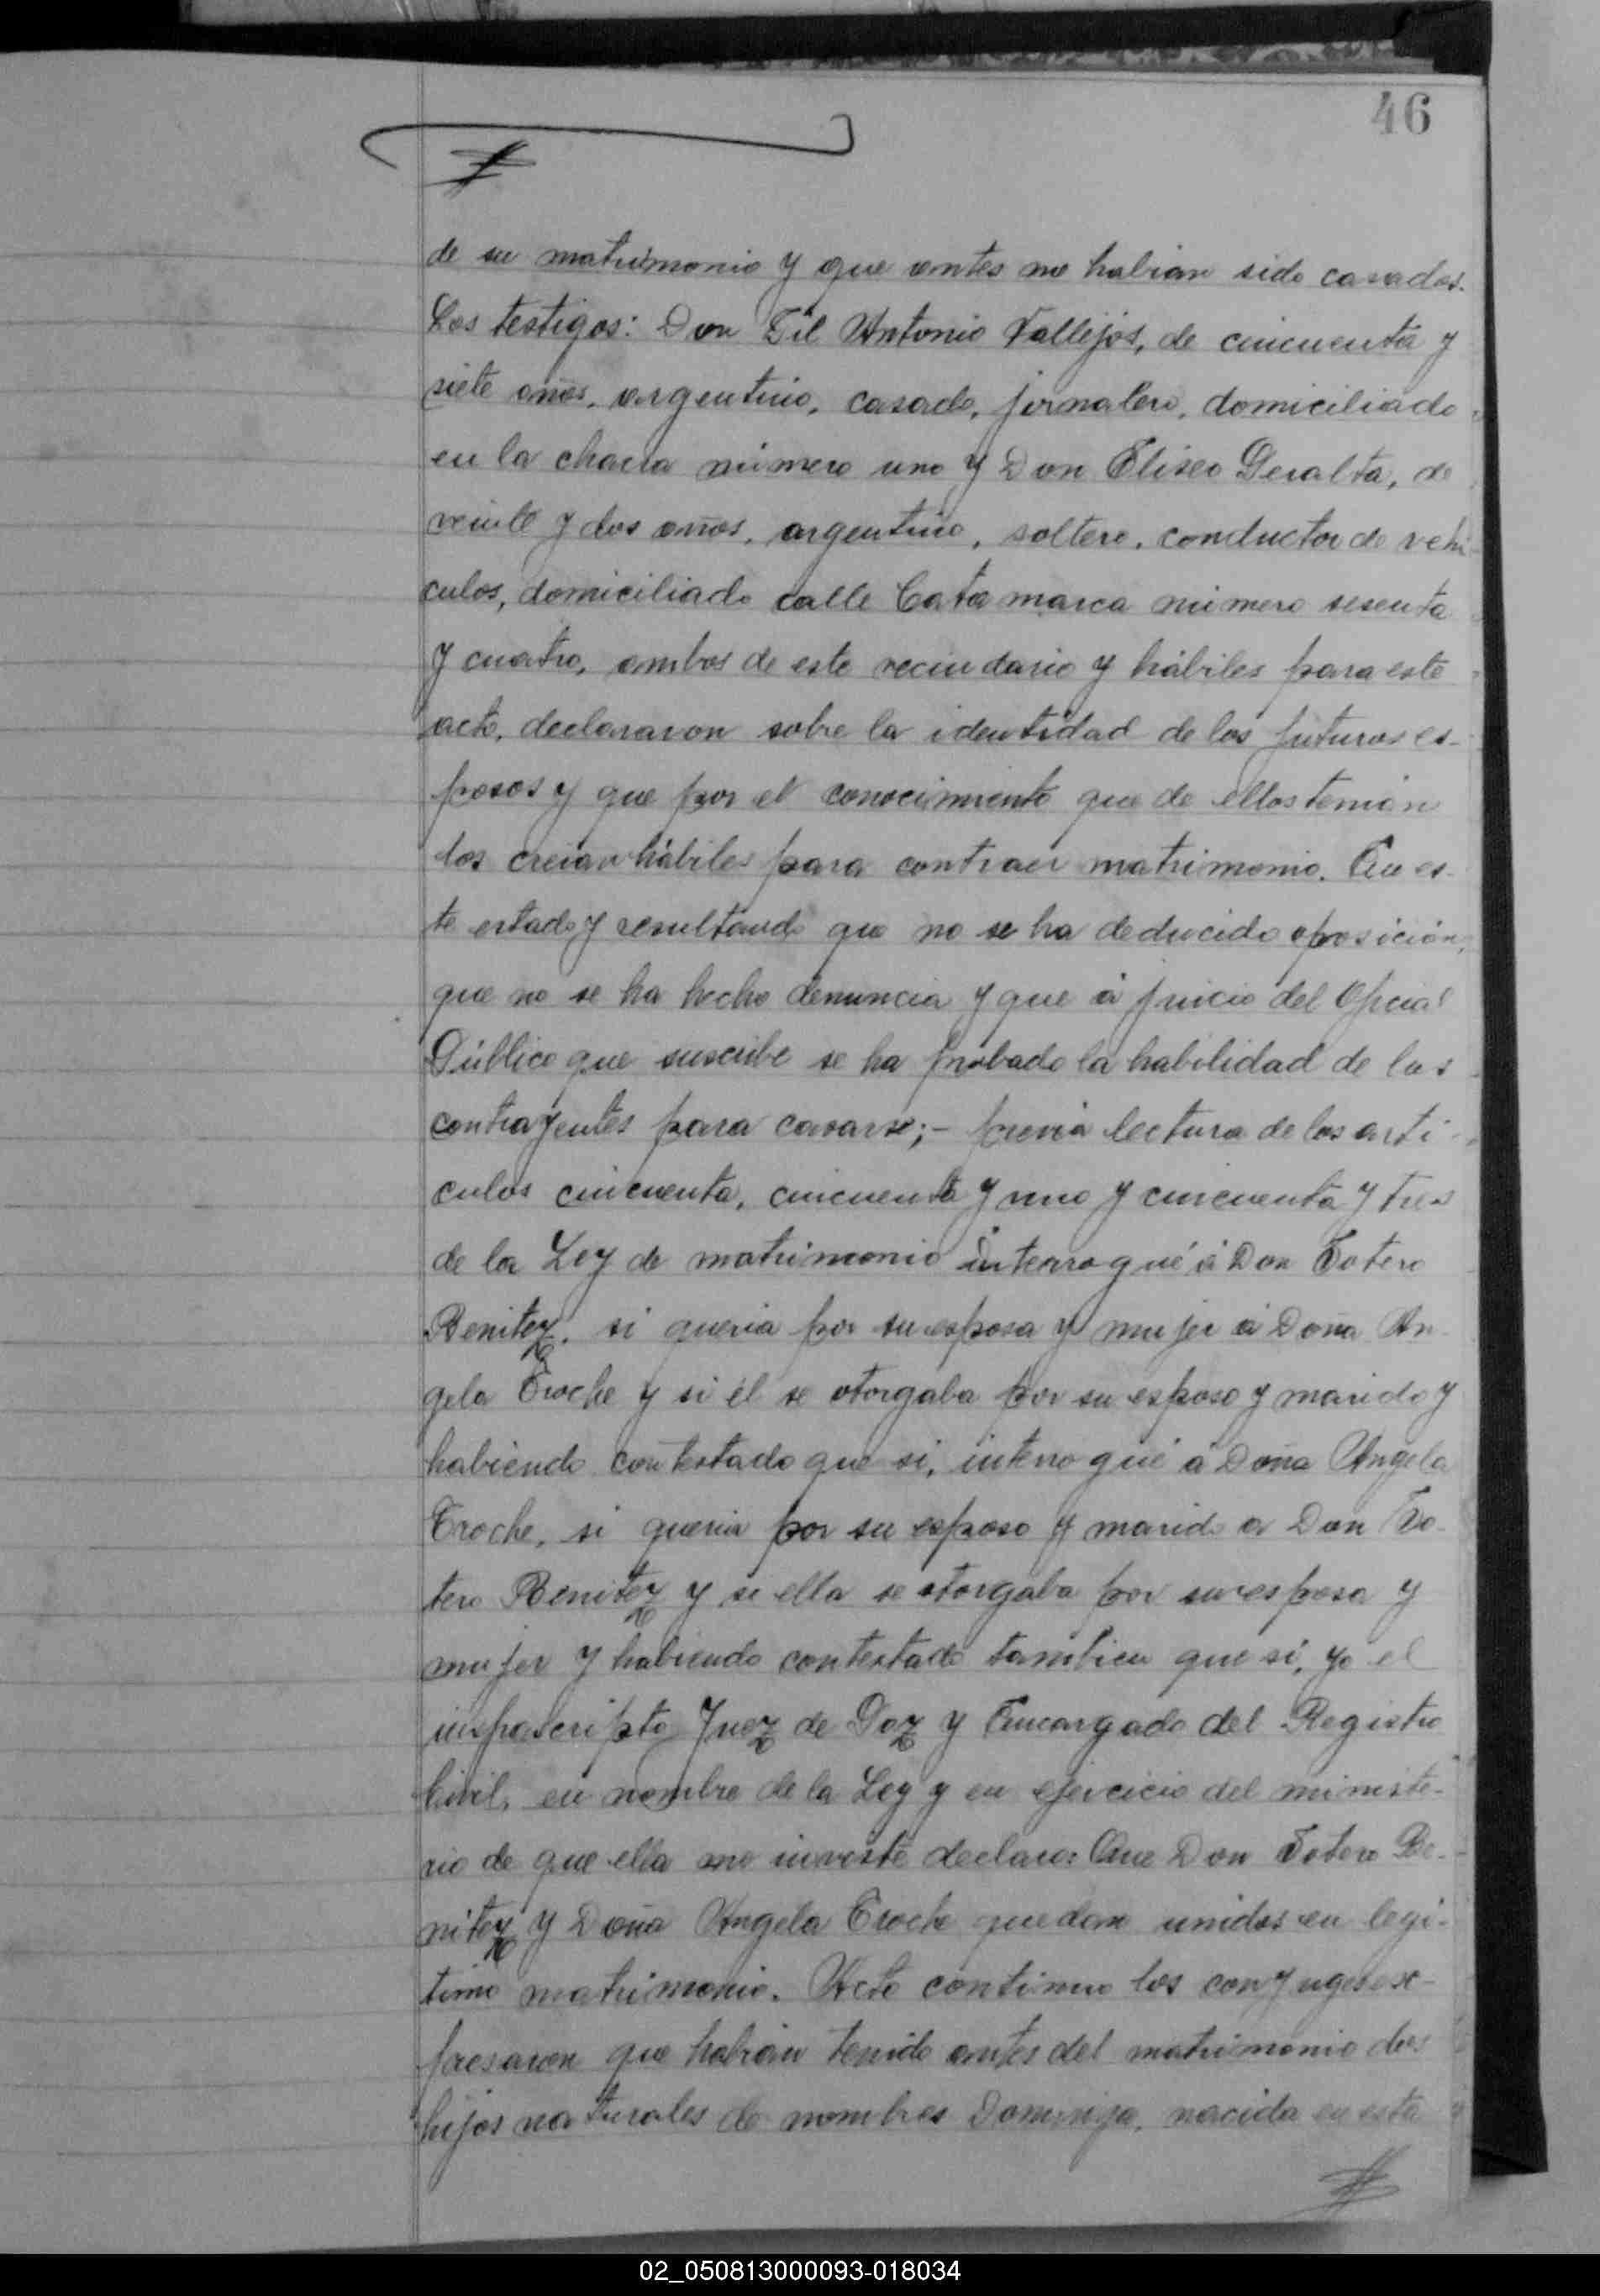 46
de su matrimonio y que antes no habian sido casados.
Los testigos: Don Gil Antonio Vallejos, de cincuenta y
siete años, argentino, casado, jornalero, domiciliado
en la chacra número uno y Don Eliseo Peralta, de
veinte y dos años, argentino, soltero, conductor de vehi-
culos, domiciliado calle Catamarca número sesenta
y cuatro, ambos de este vecindario y hábiles para este
acto, declararon sobre la identidad de los futuros es-
posos y que por el conocimiento que de ellos tenian
los creian hábiles para contraer matrimonio. En es-
te estado y resultando que no se ha deducido oposición,
que no se ha hecho denuncia y que á juicio del Oficial
Público que suscribe se ha probado la habilidad de los
contrayentes para casarse;- previa lectura de los arti-
culos cincuenta, cincuenta y uno y cincuenta y tres
de la Ley de matrimonio interrogué á Don Sotero
Benitez, si queria por su esposa y mujer á Doña An-
gela Troche y si él se otorgaba por su esposo y marido y
habiendo contestado que si, interrogué á Doña Angela
Troche, si queria por su esposo y marido a Don So-
tero Benitez y si ella se otorgaba por su esposa y
mujer y habiendo contestado tambien que si, yo el
infrascripto Juez de Paz y Encargado del Registro
Civil, en nombre de la Ley y en ejercicio del ministe-
rio de que ella me inviste declaro: Que Don Sotero Be-
nitez y Doña Angela Troche quedan unidos en legi-
timo matrimonio. Acto continuo los conyuges ex-
presaron que habian tenido antes del matrimonio dos
hijos naturales de nombres Dominga, nacida en esta
02_050813000093-018034